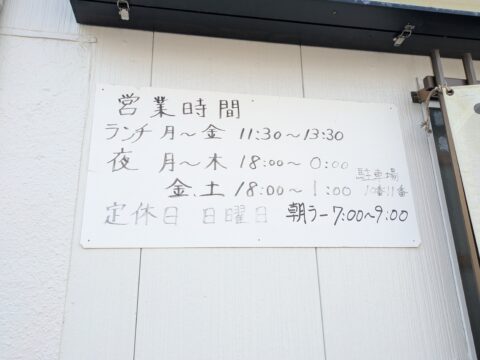 営業時間
ランチ 月〜金 11:30〜13:30
夜 月〜木 18:00〜0:00
金.土 18:00〜1:00
駐車場
10番11番
定休日 日曜日 朝ラー7:00〜9:00